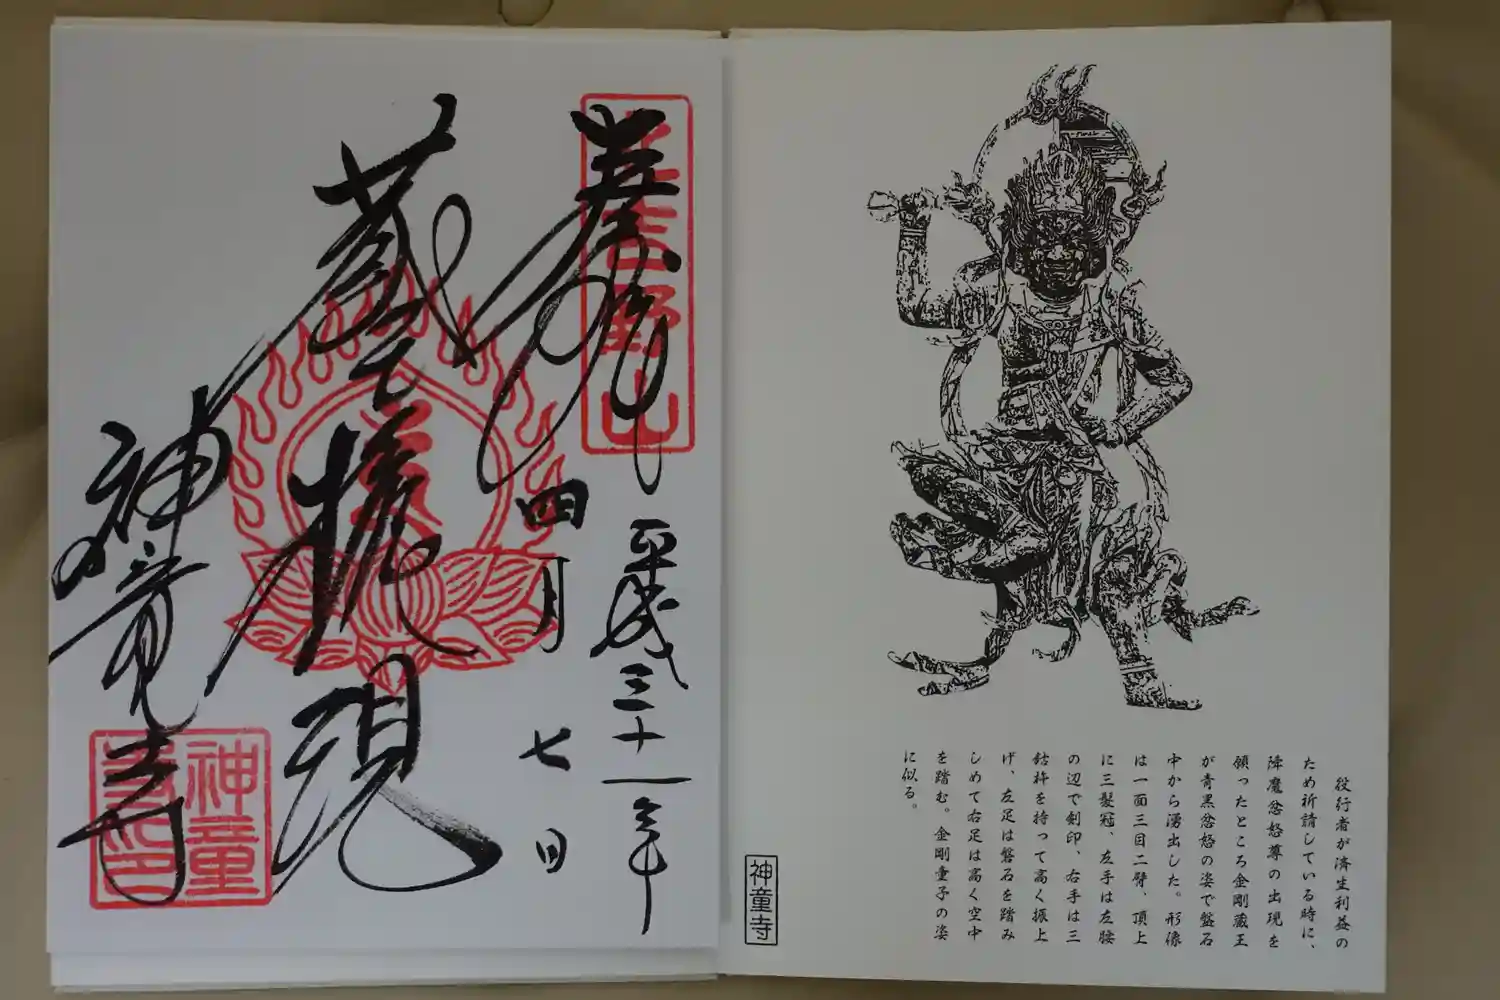 役行者が済生利益の
ため祈請している時に、
降魔忿怒尊の出現を
願ったところ金剛蔵王
が青黒忿怒の姿で盤石
中から湧出した。形像
は一面三目二臂、頂上
に三髪冠、左手は左腰
の辺で剣印、右手は三
鈷杵を持って高く振上
げ、左足は磐石を踏み
しめて右足は高く空中
を踏む。金剛童子の姿
に似る。
神童寺
奉拝
北吉野山
平成三十一年
四月七日
蔵王権現
神童寺
神童
寺印